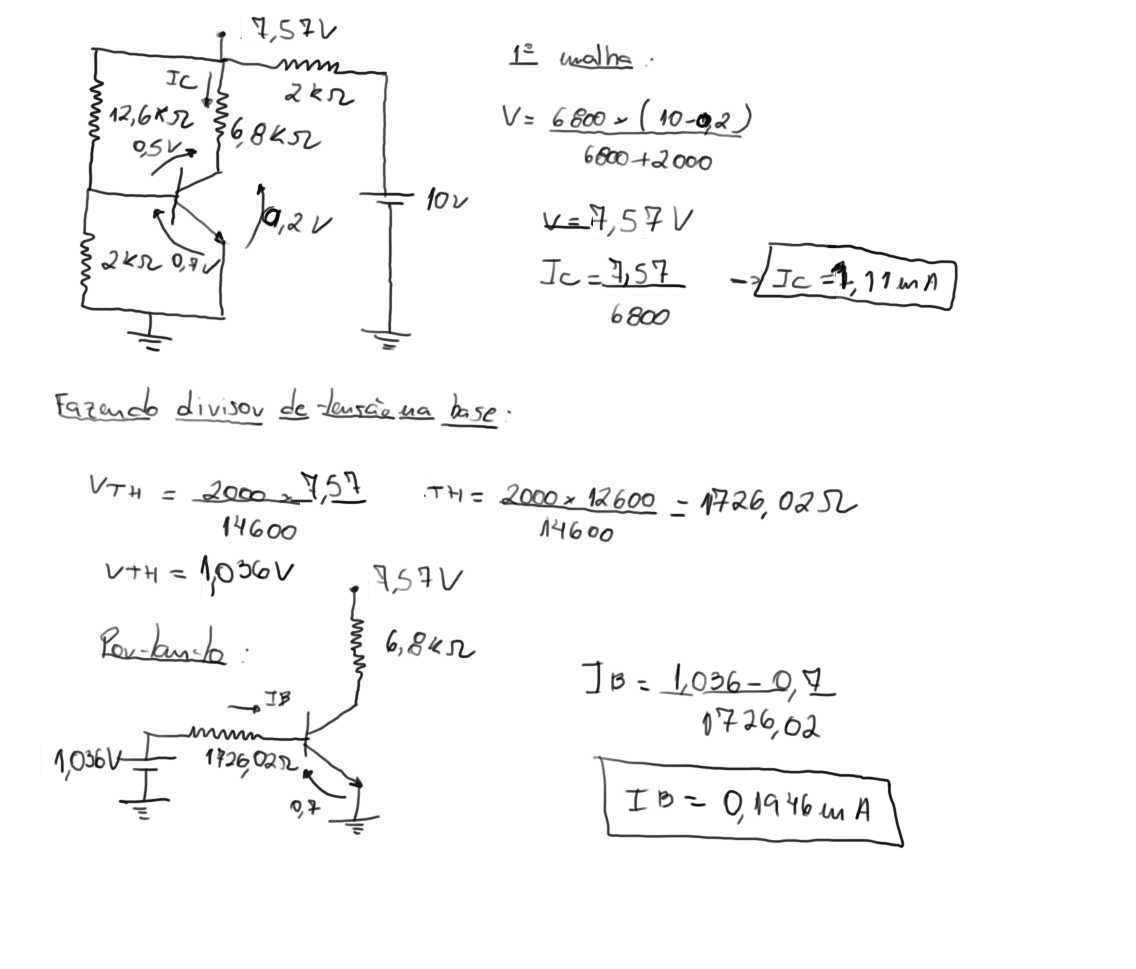 7,57V
IC
2kΩ
12,6KΩ
6,8KΩ
0,5V
10V
0,2V
2kΩ 0,7V
1ª malha:
V= 6800 × (10-0,2)
6800+2000
V=7,57V
IC = 7,57 → IC = 1,11mA
6800
Fazendo divisor de tensão na base:
VTH = 2000 × 7,57
14600
TH = 2000 × 12600 = 1726,02Ω
14600
VTH = 1,036V
7,57V
6,8KΩ
Portanto:
IB
1,036V
1726,02Ω
0,7
IB = 1,036 - 0,7
1726,02
IB = 0,1946mA